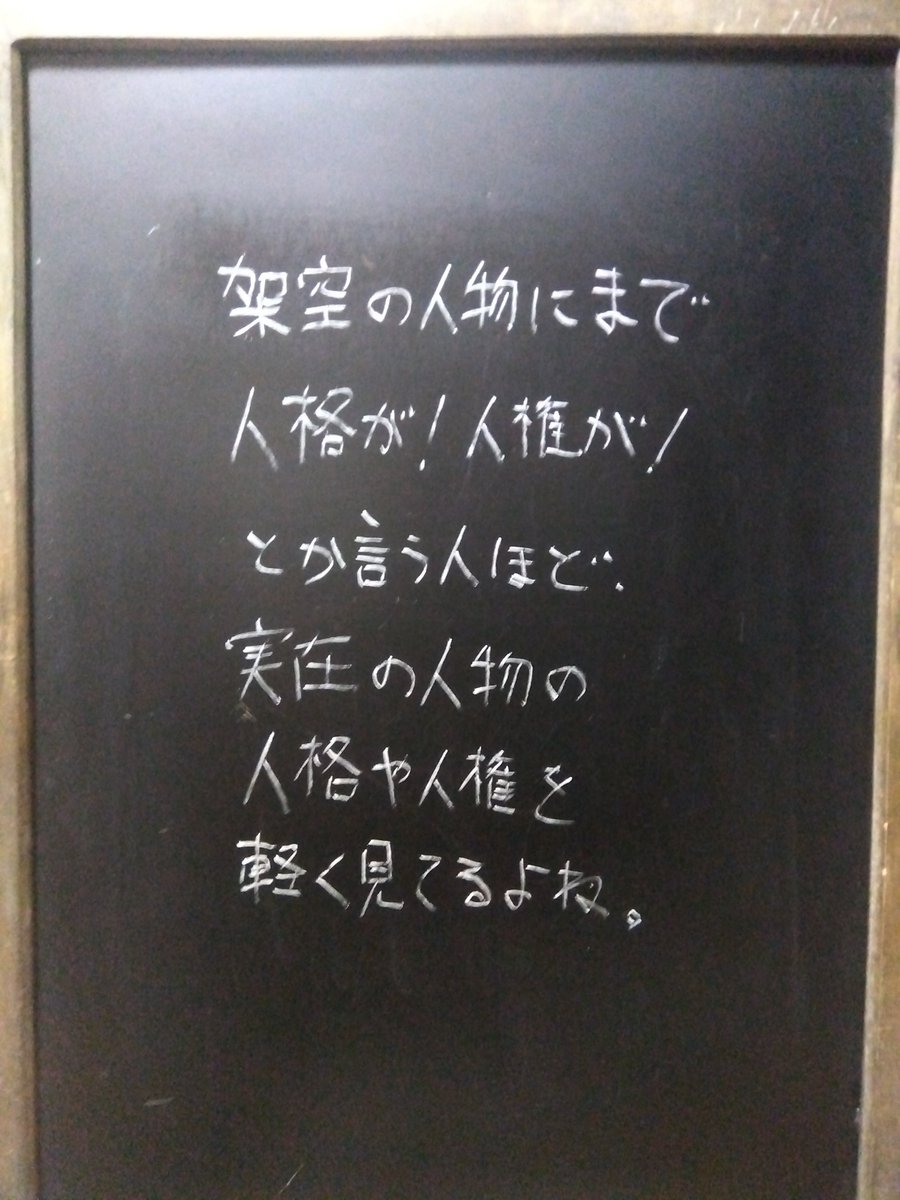 架空の人物にまで
人格が!人権が!
とか言う人ほど、
実在の人物の
人格や人権を
軽く見てるよね。